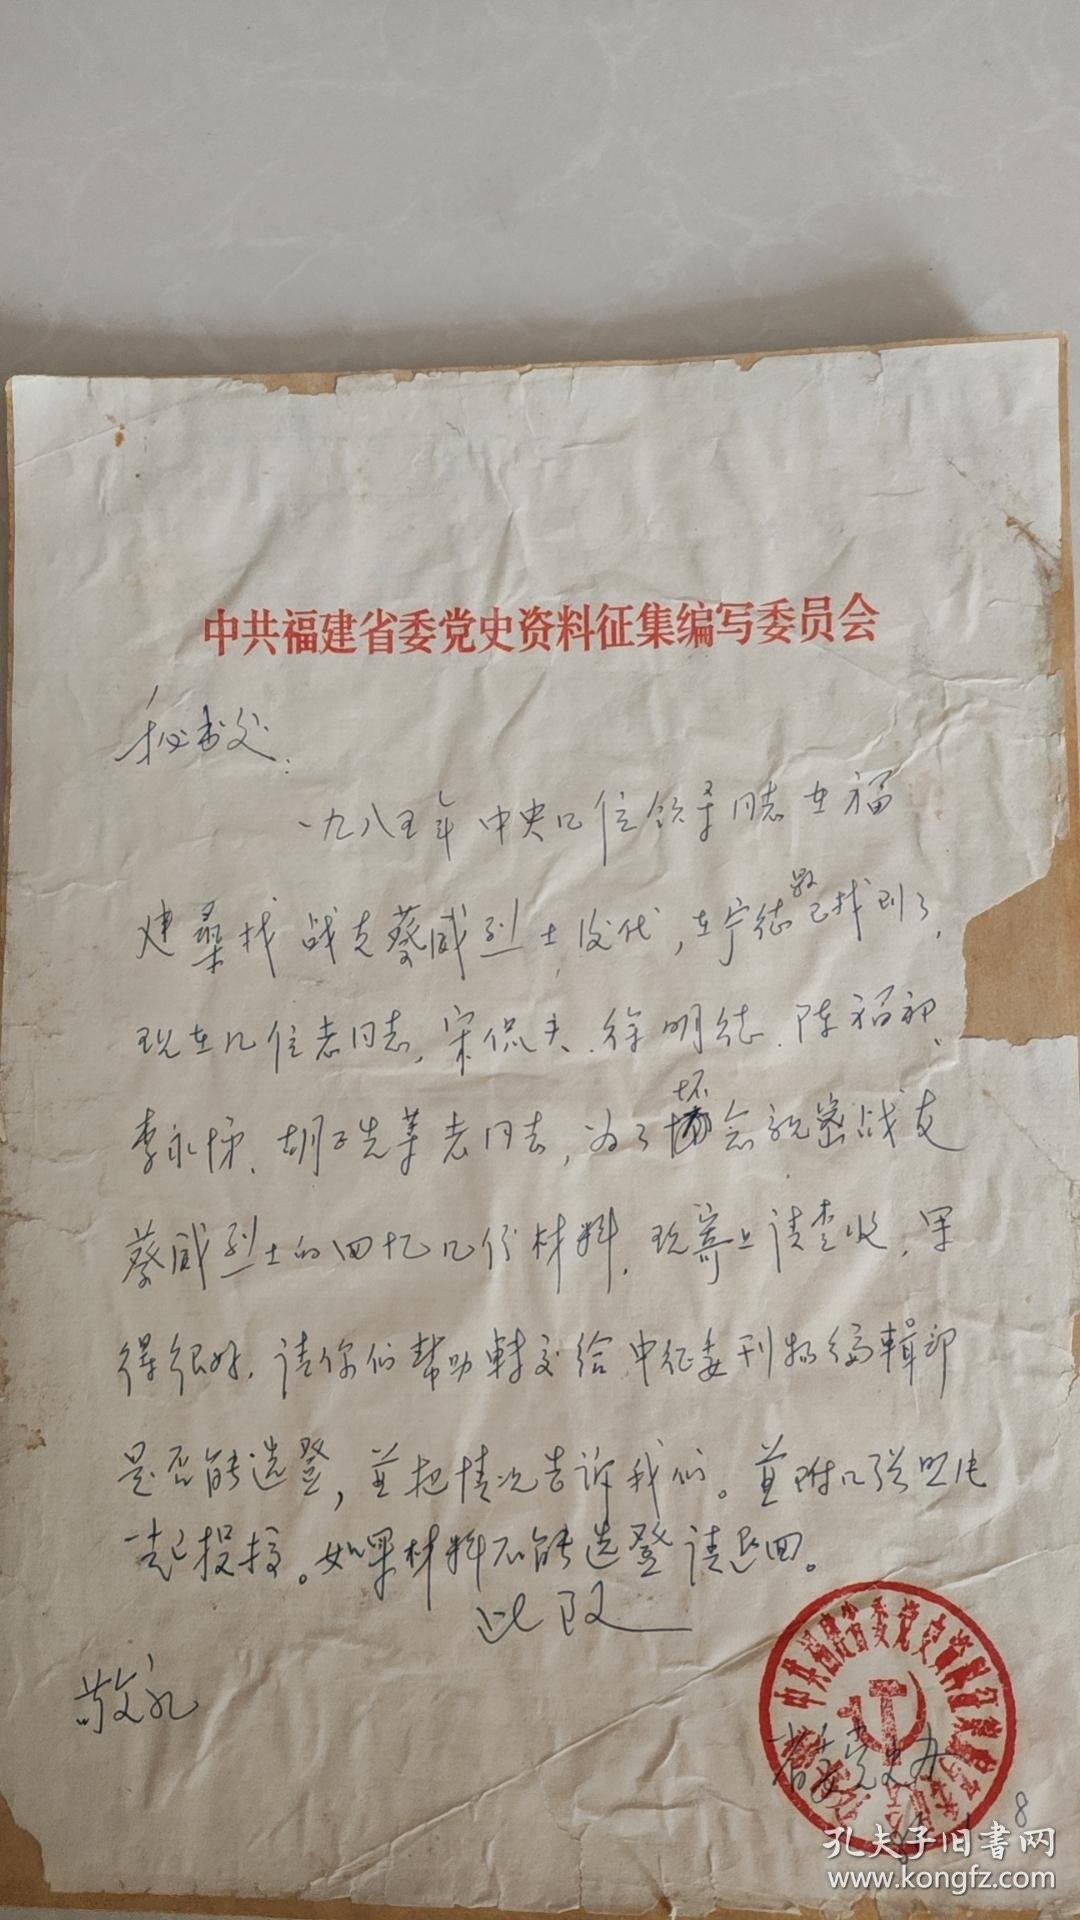 中共福建省委党史资料征集编写委员会
秘书处：
一九八五年中央几位领导同志在福
建寻找战友蔡威烈士后代，在宁德最已找到了，
现在几位老同志，宋侃夫、徐明德、陈福初、
李永悌、胡子先等老同志，为了怀念机密战友
蔡威烈士的回忆几份材料，现寄上请查收，果
得很好，请你们帮助转交给中征委刊物编辑部
是否能选登，并把情况告诉我们。并附几张照片
一起投接。如果材料不能选登请退回。
此致
敬礼
中共福建省委党史资料征集编写委员会
省委党史办
8
孔夫子旧书网
www.kongfz.com